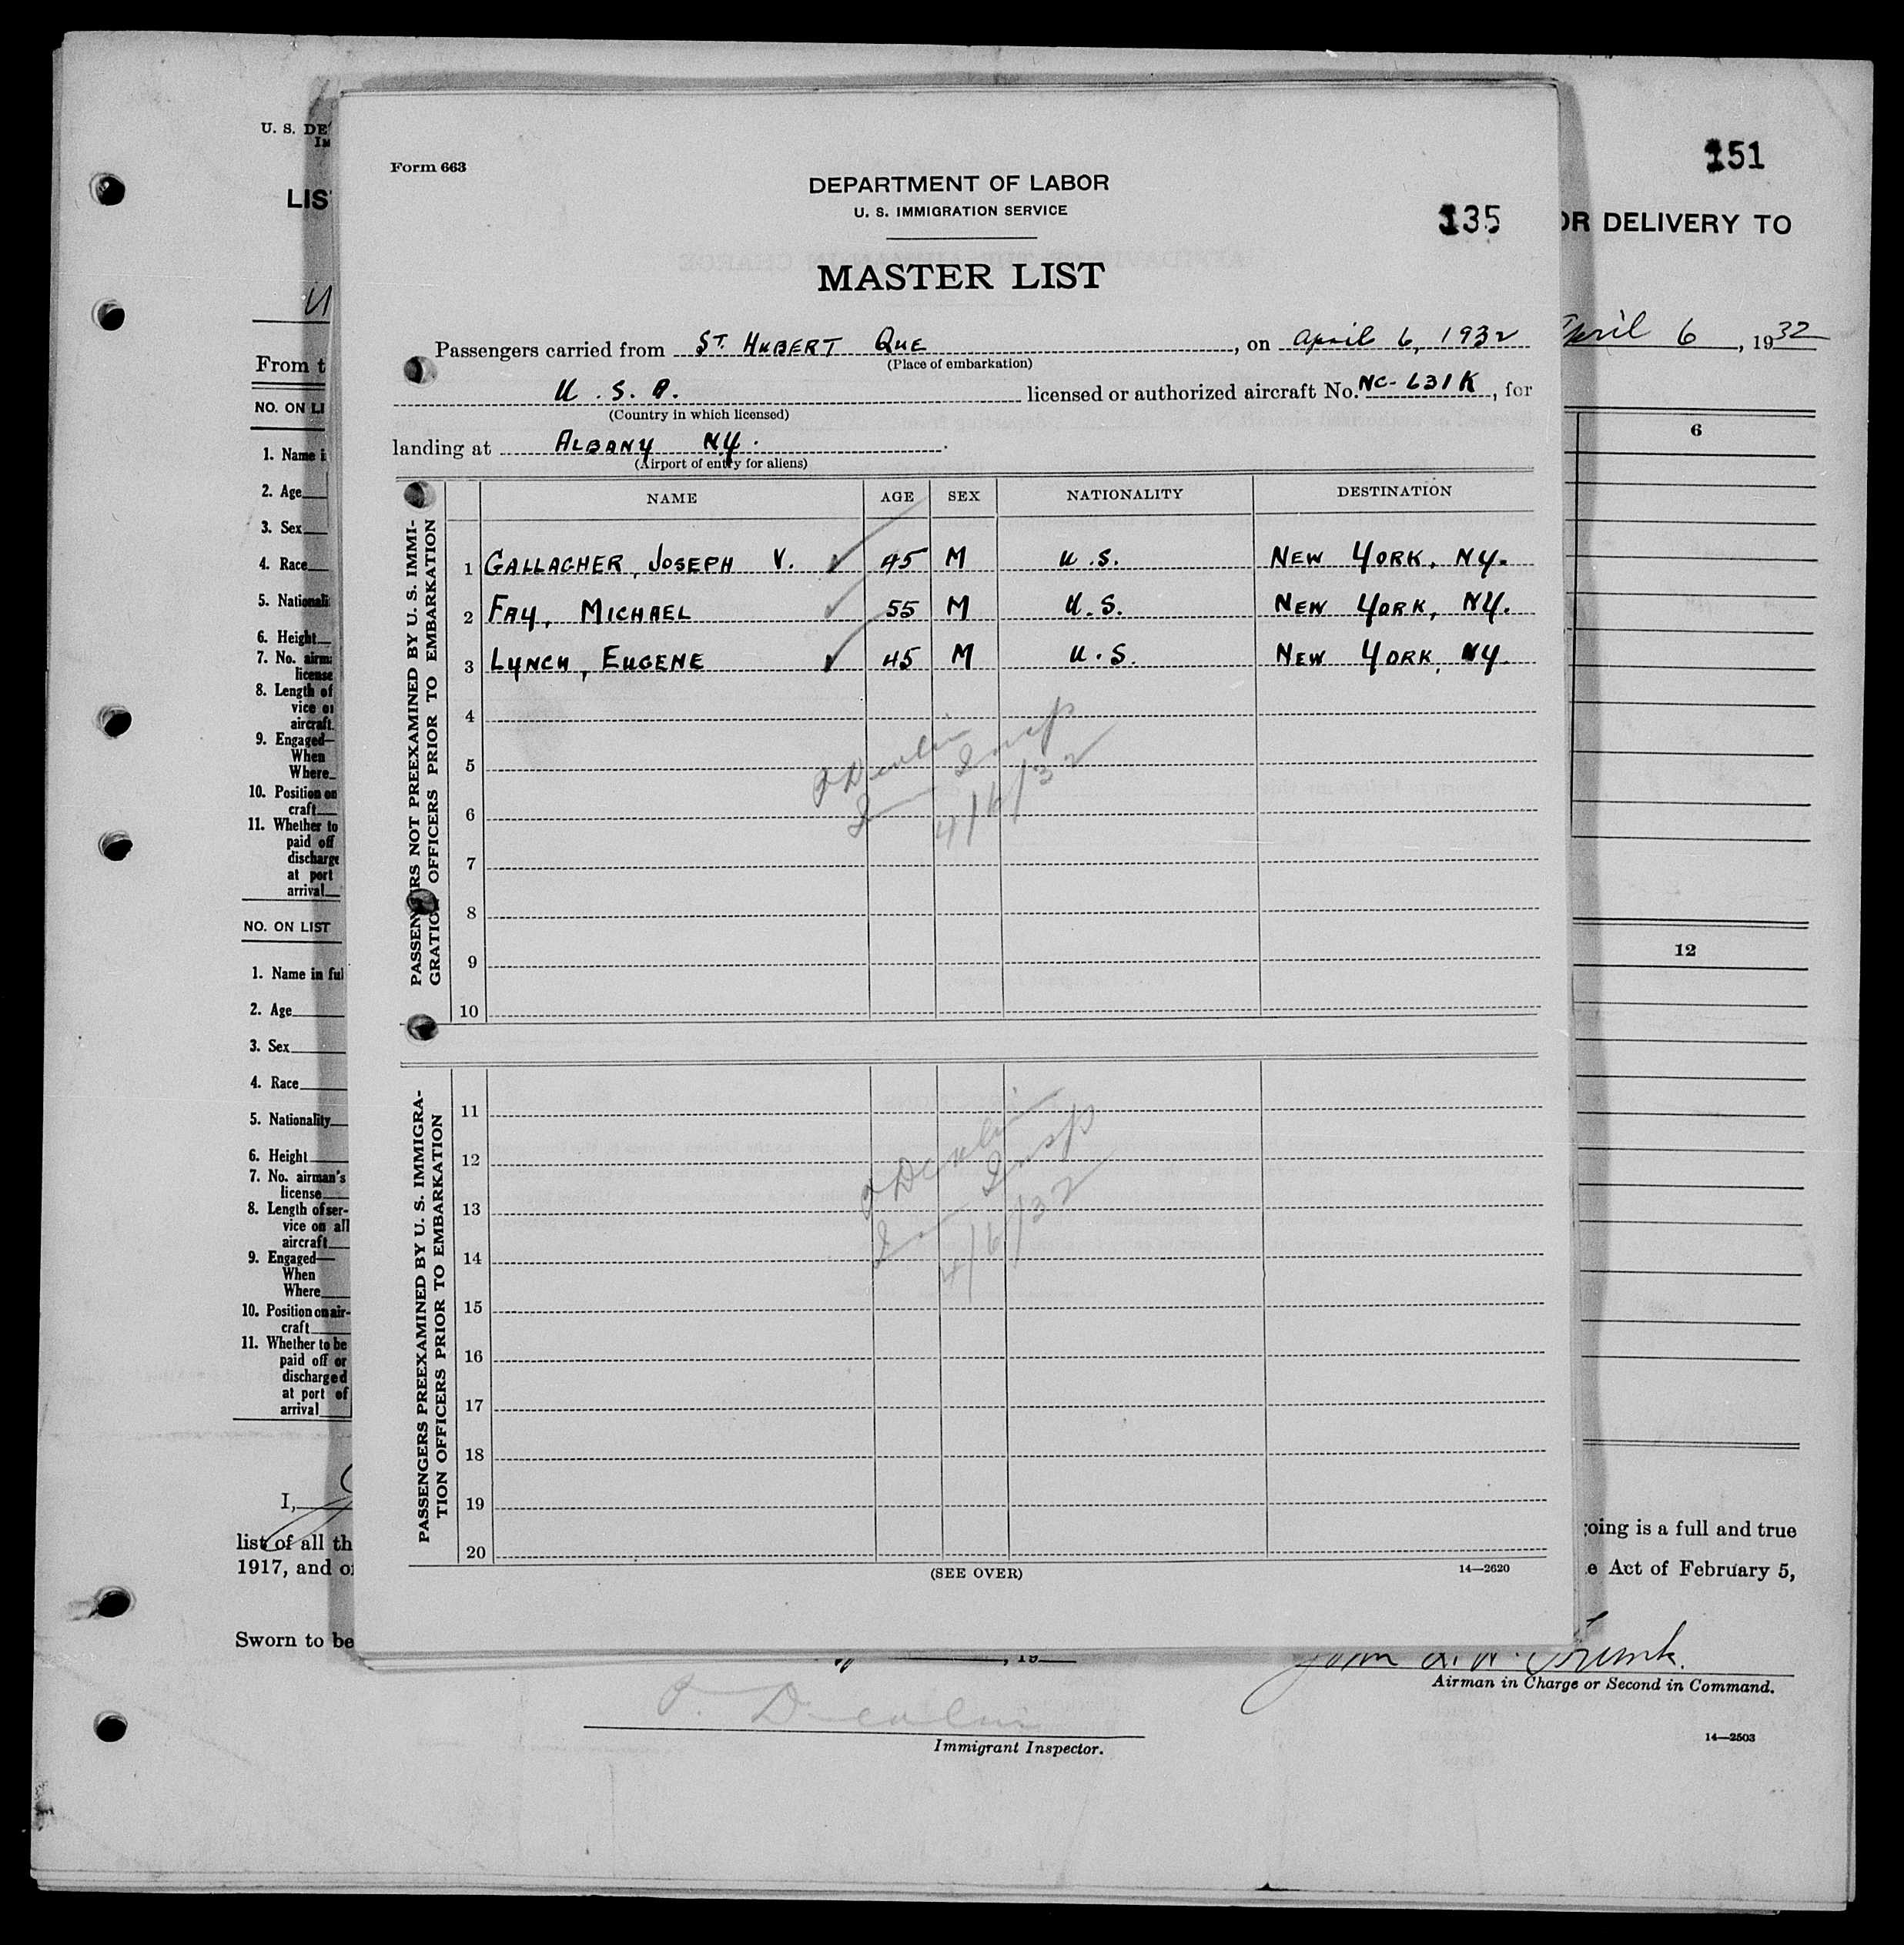 U. S. DE
IM
151
LIS
OR DELIVERY TO
April 6, 1932
From t
NO. ON LI
6
1. Name i
2. Age
3. Sex
4. Race
5. Nationali
6. Height
7. No. airm
license
8. Length of
vice on
aircraft
9. Engaged—
When
Where
10. Position on
craft
11. Whether to
paid off
discharge
at port
arrival
NO. ON LIST
12
1. Name in ful
2. Age
3. Sex
4. Race
5. Nationality
6. Height
7. No. airman's
license
8. Length of ser-
vice on all
aircraft
9. Engaged—
When
Where
10. Position on air-
craft
11. Whether to be
paid off or
discharged
at port of
arrival
I,
going is a full and true
list of all th
1917, and o
e Act of February 5,
Sworn to be
, 19
Airman in Charge or Second in Command.
P. Devlin
Immigrant Inspector.
14—2503
Form 663
DEPARTMENT OF LABOR
U. S. IMMIGRATION SERVICE
135
MASTER LIST
Passengers carried from ST. HUBERT QUE, on April 6, 1932
(Place of embarkation)
U.S.A. licensed or authorized aircraft No. NC-631K, for
(Country in which licensed)
landing at ALBANY NY.
(Airport of entry for aliens)
NAME AGE SEX NATIONALITY DESTINATION
PASSENGERS NOT PREEXAMINED BY U. S. IMMI-
GRATION OFFICERS PRIOR TO EMBARKATION
1 GALLAGHER, JOSEPH V. 45 M U.S. NEW YORK, NY.
2 FAY, MICHAEL 55 M U.S. NEW YORK, NY.
3 LYNCH, EUGENE 45 M U.S. NEW YORK, NY.
4
5
6
7
8
9
10
P Devlin
Im Insp
4/6/32
PASSENGERS PREEXAMINED BY U. S. IMMIGRA-
TION OFFICERS PRIOR TO EMBARKATION
11
12
13
14
15
16
17
18
19
20
P Devlin
Im Insp
4/6/32
(SEE OVER)
14—2620